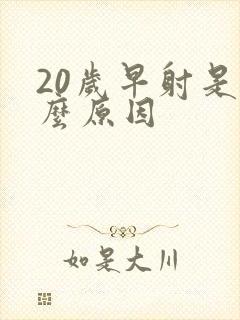 20歲早射是
麼原因
如是大川